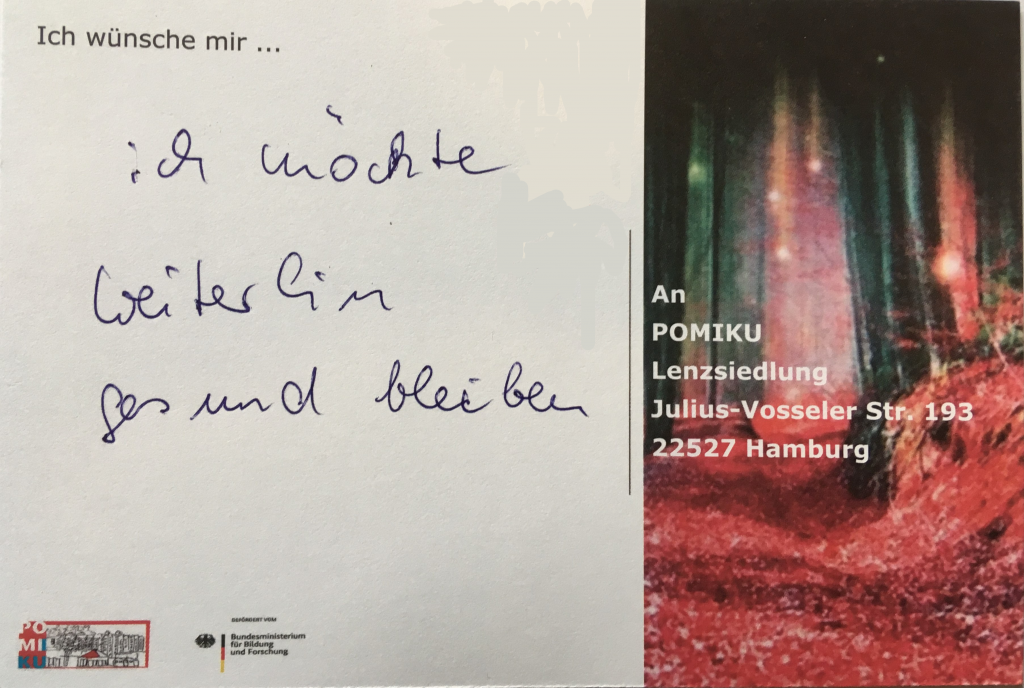 Ich wünsche mir ...
ich möchte
weiterhin
gesund bleiben
An
POMIKU
Lenzsiedlung
Julius-Vosseler Str. 193
22527 Hamburg
PO
MI
KU
GEFÖRDERT VOM
Bundesministerium
für Bildung
und Forschung